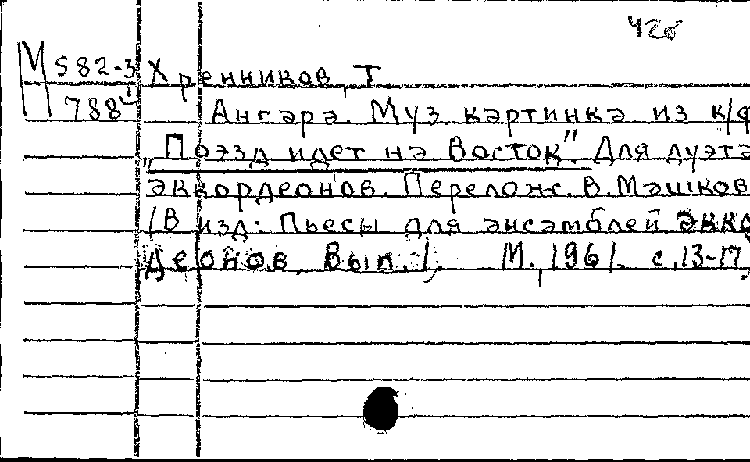 42б
М 582-3 Хренников, Т
788 Ангара. Муз картинка из к/ф
"Поезд идет на Восток". Для дуэта
аккордеонов. Перелож. В. Машков
/В изд: Пьесы для ансамблей акко
деонов. Вып. 1. М., 1961. с. 13-17.